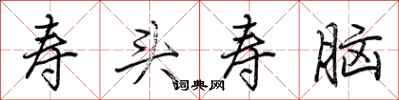 寿头寿脑
词典网